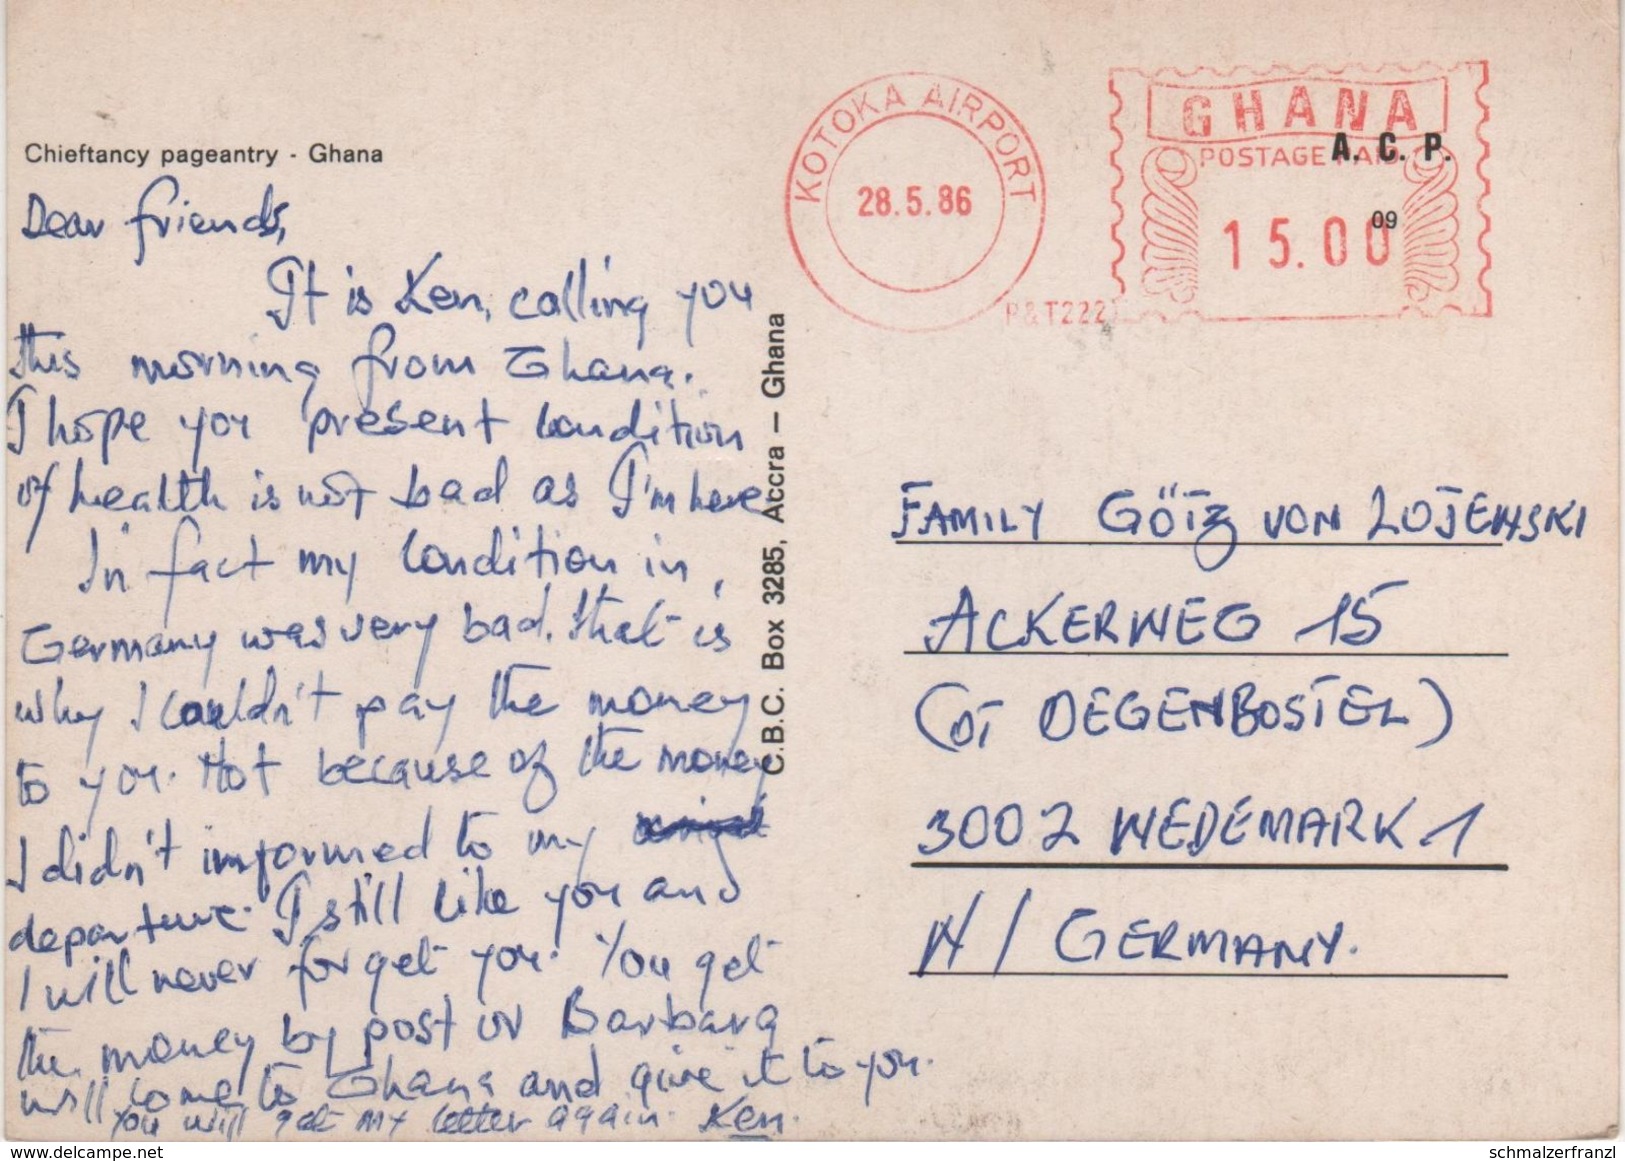 Chieftancy pageantry - Ghana
Dear friends,
It is Ken, calling you
this morning from Ghana.
I hope you present condition
of health is not bad as I'm here
In fact my condition in
Germany was very bad. that is
why I couldn't pay the money
to you. Not because of the money
I didn't informed to my
departure. I still like you and
I will never forget you. You get
the money by post or Barbara
will come to Ghana and give it to you.
You will get my letter again. Ken.
C.B.C. Box 3285, Accra – Ghana
KOTOKA AIRPORT
28.5.86
P&T222
GHANA
POSTAGE PAID
A. C. P.
15.00
09
FAMILY GÖTZ VON LOJEWSKI
ACKERWEG 15
(OT DEGENBOSTEL)
3002 WEDEMARK 1
W/ GERMANY.
www.delcampe.net
schmalzerfranzl